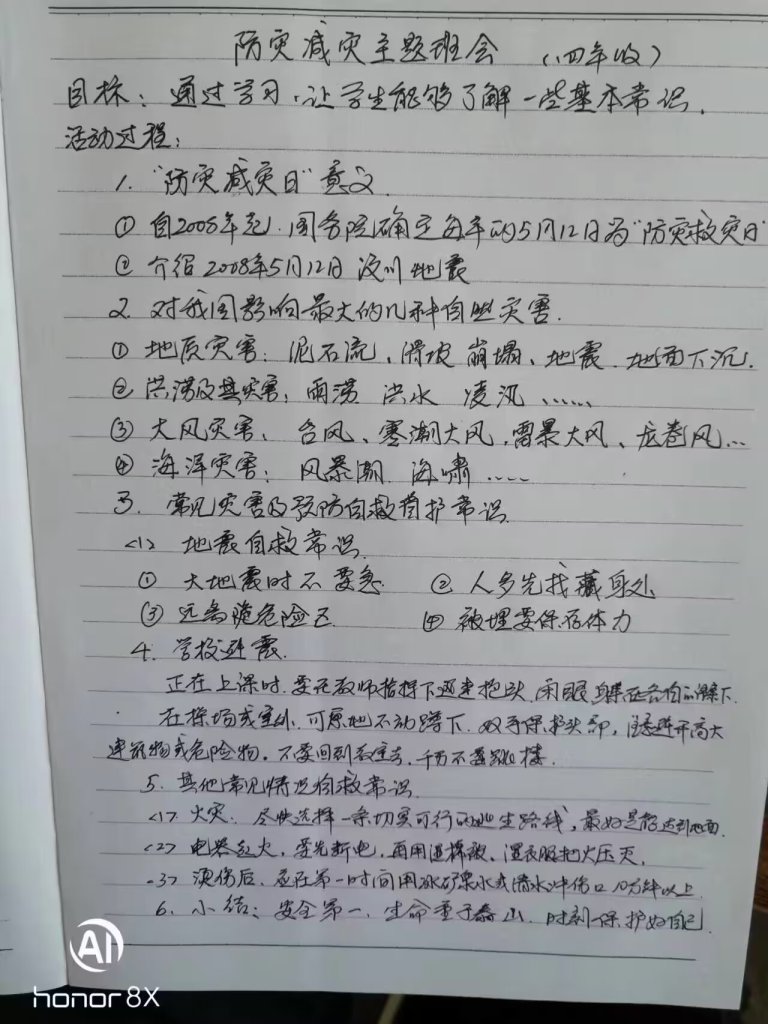 防灾减灾主题班会 (四年级)
目标:通过学习,让学生能够了解一些基本常识.
活动过程:
1. "防灾减灾日"意义
① 自2008年起.国务院确定每年的5月12日为"防灾救灾日"
② 介绍2008年5月12日汶川地震
2. 对我国影响最大的几种自然灾害.
① 地质灾害:泥石流、滑坡 崩塌、地震 地面下沉.
② 洪涝及其灾害:雨涝 洪水 凌汛 ......
③ 大风灾害:台风、寒潮大风,雷暴大风、龙卷风...
④ 海洋灾害:风暴潮.海啸....
3. 常见灾害及预防自救自护常识.
<1> 地震自救常识.
① 大地震时不要急 ② 人多先找藏身处
③ 远离危险区 ④ 被埋要保存体力
4. 学校避震.
正在上课时.要在教师指挥下迅速抱头.闭眼.躲在各自的课桌下
在操场或室外,可原地不动蹲下.双手保护头部,注意避开高大
建筑物或危险物.不要回到教室去,千万不要跳楼.
5. 其他常见情况自救常识.
<1> 火灾:尽快选择一条切实可行的逃生路线,最好是能达到地面.
<2> 电器起火,要先断电,再用湿棉被、湿衣服把火压灭.
<3> 烫伤后.应在第一时间用冰矿泉水或清水冲伤口10分钟以上.
6. 小结:安全第一.生命重于泰山.时刻保护好自己.
AI
honor 8X